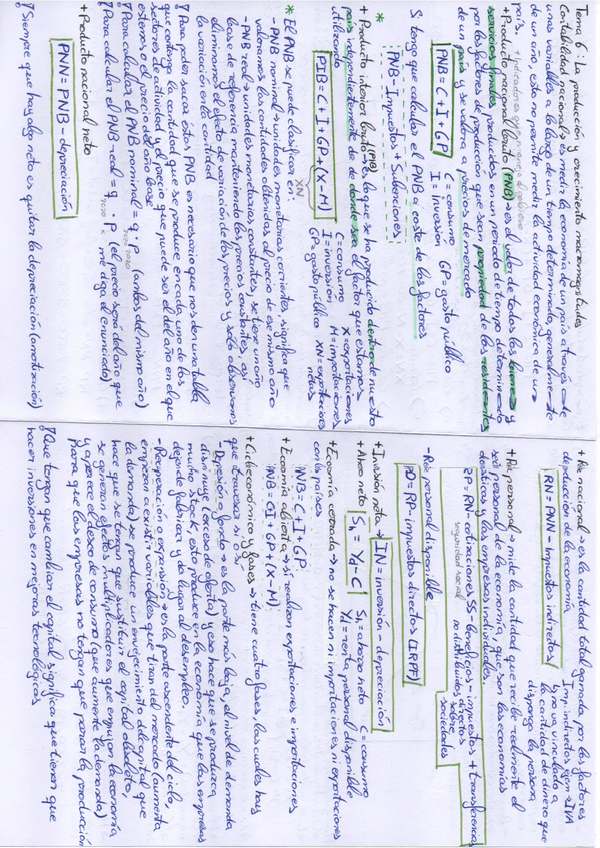 Tema 6: La producción y crecimiento macromagnitudes
Contabilidad nacional → es medir la economía de un país a través de
unas variables a lo largo de un tiempo determinado, generalmente
de un año, esto nos permite medir la actividad económica de un
país.
+ Producto nacional bruto (PNB) → es el valor de todos los bienes y
servicios finales producidos en un periodo de tiempo determinado
por los factores de producción que sean propiedad de los residentes
de un país y se valora a precios de mercado
PNB = C + I + GP
C = consumo
I = inversión
GP = gasto público
Si tengo que calcular el PNB a coste de los factores
PNB - Impuestos + Subvenciones
+ Producto interior bruto (PIB) → es lo que se ha producido dentro de nuestro
país independientemente de dónde sea el factor que estamos
utilizando
PIB = C + I + GP + (X - M)
XN
C = consumo
I = inversión
GP = gasto público
X = exportaciones
M = importaciones
XN = exportaciones
netas
* El PNB se puede clasificar en:
- PNB nominal → unidades monetarias corrientes, significa que
valoramos las cantidades obtenidas al precio de ese mismo año
- PNB real → unidades monetarias constantes, se tiene un año
base de referencia manteniendo los precios constantes, así
eliminamos el efecto de variación de los precios y sólo observamos
la variación en la cantidad
Para poder sacar estos PNB es necesario que nos den una tabla
que contenga la cantidad que se produce en cada uno de los
sectores de actividad y el precio que puede ser el del año en el que
estemos o el precio del año base
Para calcular el PNB nominal = q · p (ambos del mismo año)
Para calcular el PNB real = q · p (el precio será del año que
me diga el enunciado)
+ Producto nacional neto
PNN = PNB - depreciación
Siempre que hay algo neto es quitar la depreciación (amortización)
+ Rta nacional → es la cantidad total ganada por los factores
de producción de la economía
RN = PNN - Impuestos indirectos
Imp. indirectos ejem → IVA
y no va vinculado a
la cantidad de dinero que
disponga la persona
+ Rta personal → mide la cantidad que recibe realmente el
ser personal de la economía, que son las economías
domésticas y las empresas individuales
RP = RN - cotizaciones SS - beneficios - impuestos + transferencias
seguridad social
no distribuidos
directos
sobre
sociedades
- Rta personal disponible
RPD = RP - impuestos directos (IRPF)
+ Inversión neta → IN = inversión - depreciación
+ Ahorro neto
Sn = Yd - C
Sn = ahorro neto
C = consumo
Yd = renta personal disponible
+ Economía cerrada → no se hacen ni importaciones ni exportaciones
con los países
PNB = C + I + GP
+ Economía abierta → si realizan exportaciones e importaciones
PNB = C + I + GP + (X - M)
+ Ciclo económico y fases → tiene cuatro fases, las cuales hay
que traversar si o si
- Depresión o fondo → es la parte más baja, el nivel de demanda
disminuye (exceso de oferta) y eso hace que se produzca
mucho stock, esto produce en la economía que las empresas
dejen de fabricar y da lugar al desempleo.
- Recuperación o expansión → es la parte ascendente del ciclo,
empiezan a existir variables que tiran del mercado (aumenta
la demanda) se produce un envejecimiento del capital que
hace que se tenga que sustituir el capital obsoleto,
se generan efectos multiplicadores que empujan la economía
y aparece el deseo de consumo (que aumente la demanda)
para que las empresas no tengan que parar la producción
Que tengan que cambiar el capital significa que tienen que
hacer inversiones en mejoras tecnológicas